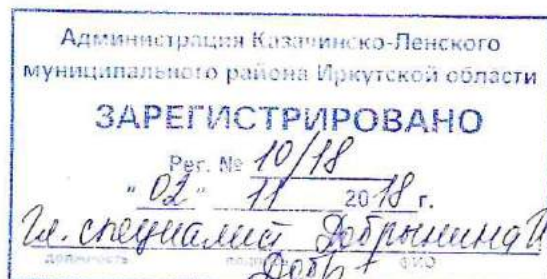 Администрация Казачинско-Ленского
муниципального района Иркутской области
ЗАРЕГИСТРИРОВАНО
Рег. № 10/18
"02" 11 2018 г.
Гл. специалист Добрынина И
должность подпись ФИО
Добр